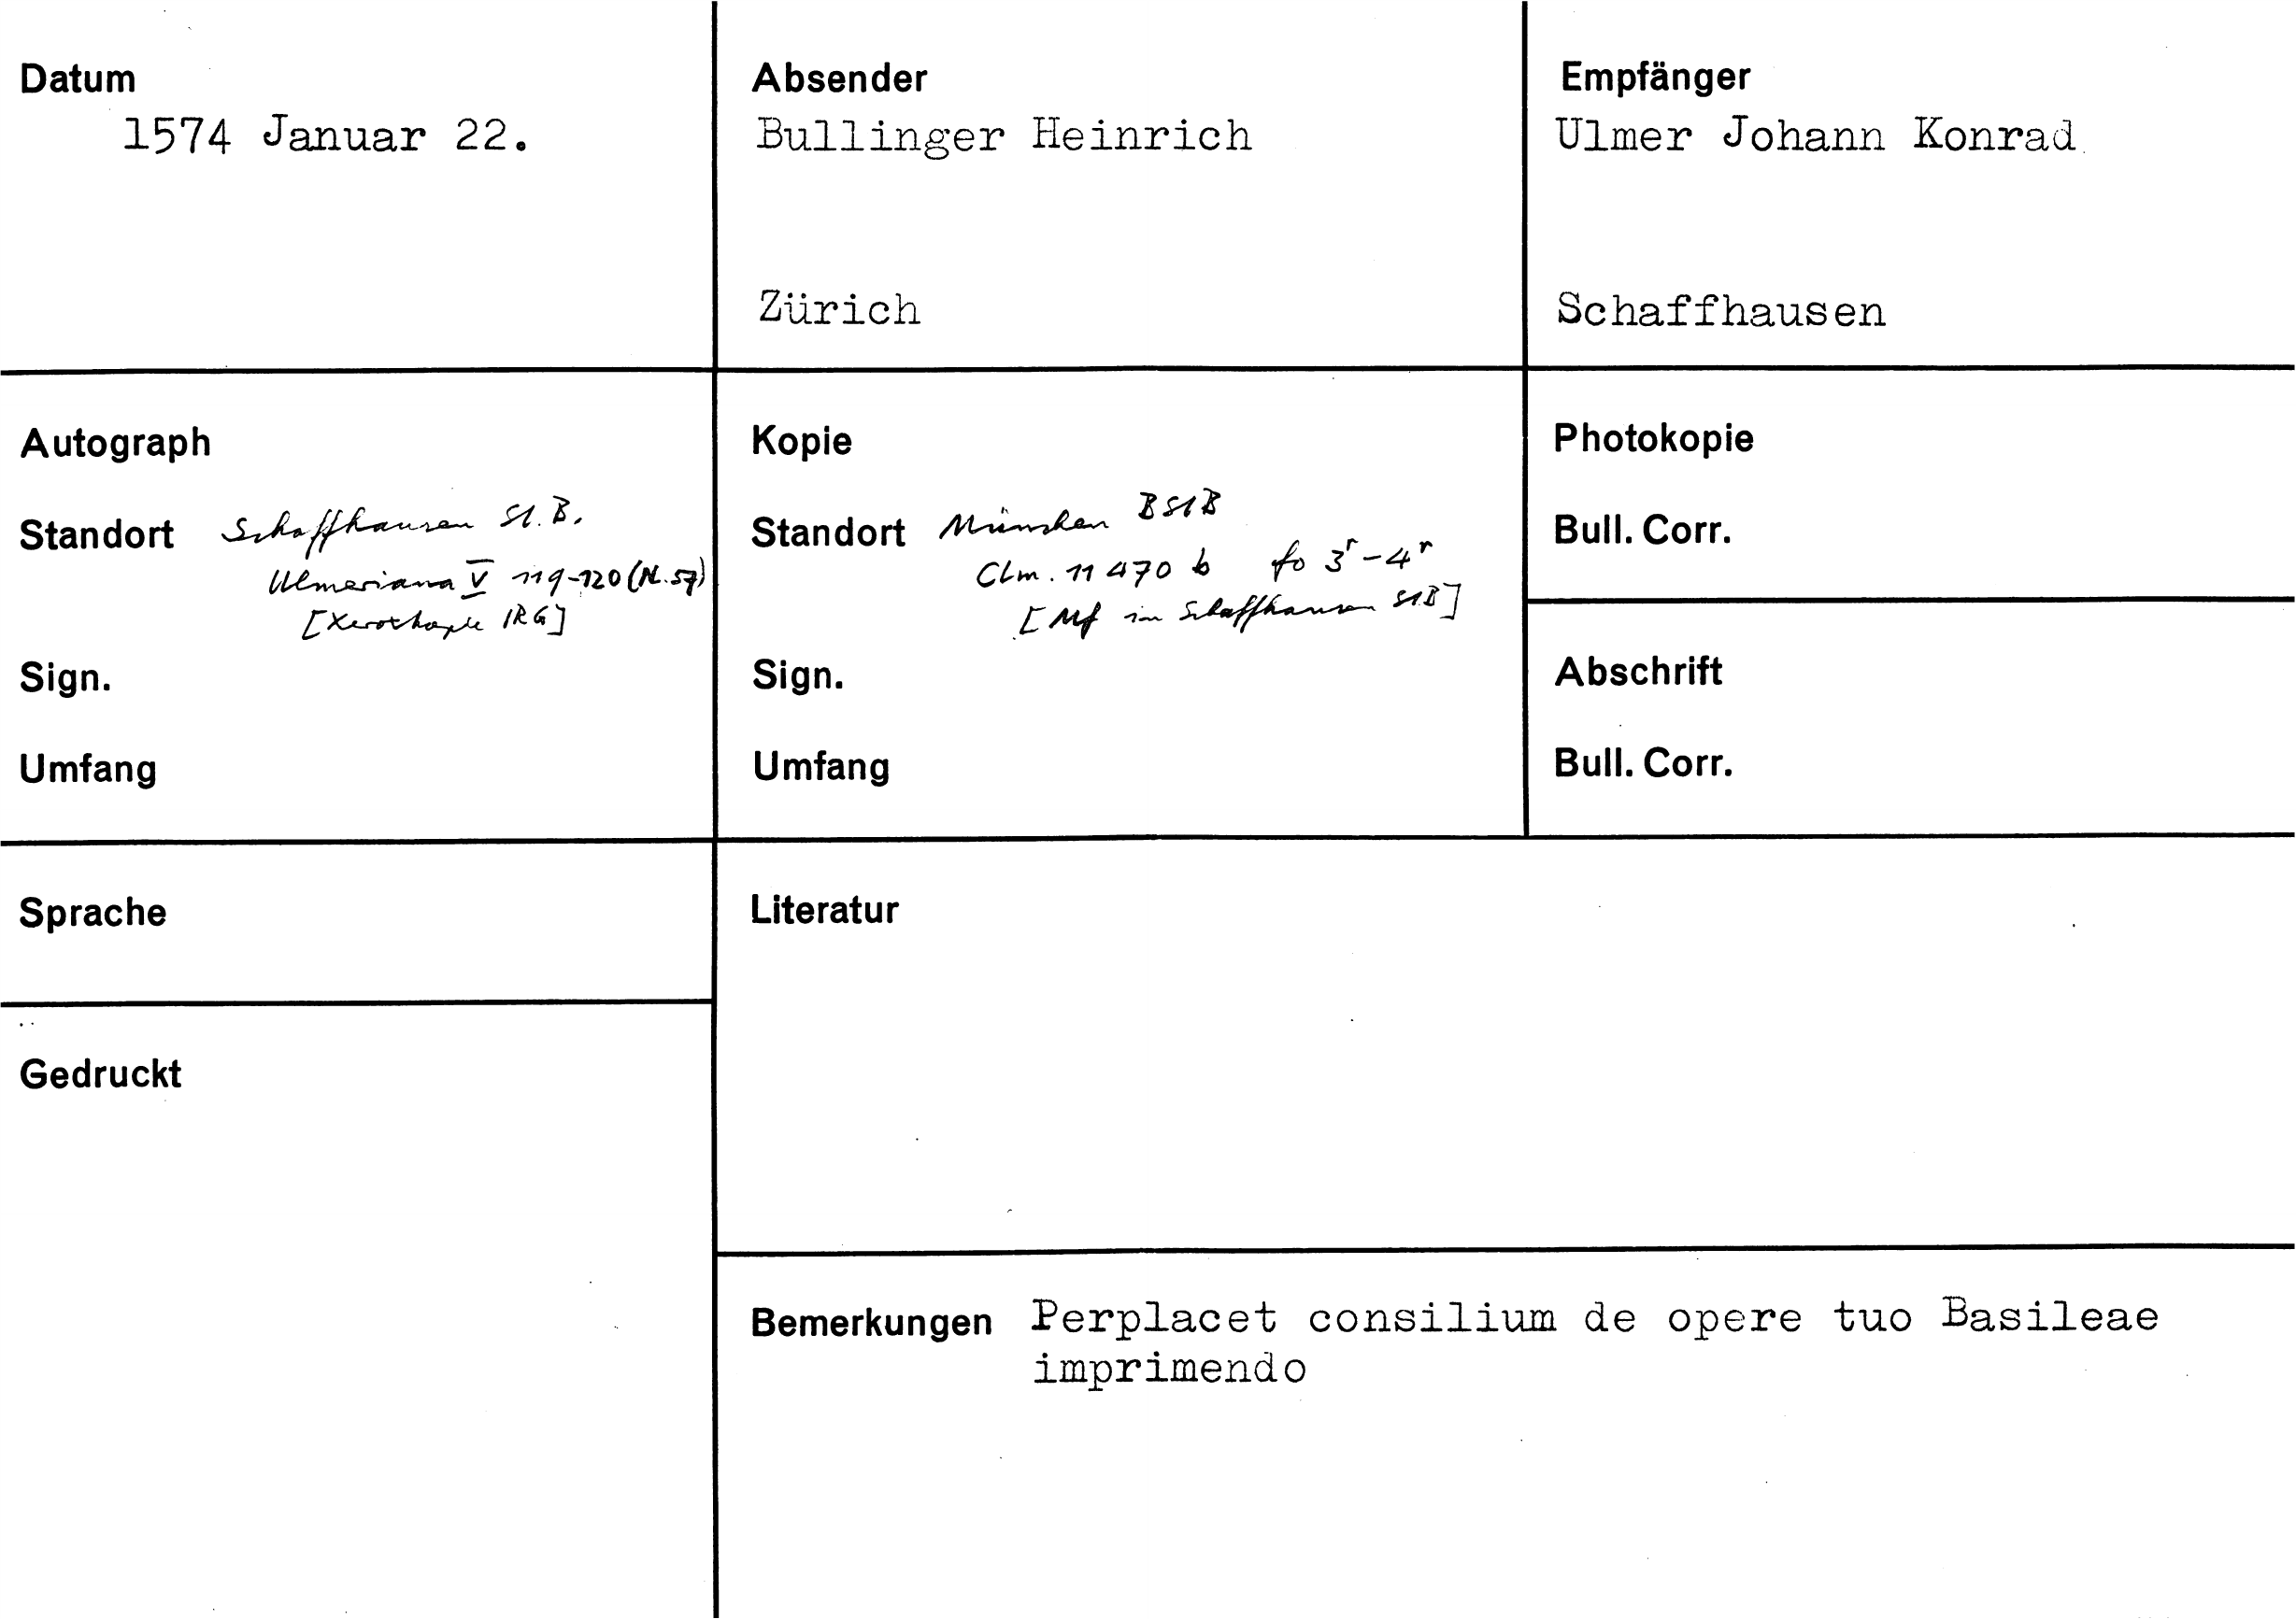 Datum
1574 Januar 22.
Absender
Bullinger Heinrich
Zürich
Empfänger
Ulmer Johann Konrad
Schaffhausen
Autograph
Standort Schaffhausen St. B.
Ulmeriana V 119-120 (N. 57)
[Xerokopie IRG]
Sign.
Umfang
Kopie
Standort München BStB
Clm. 11470 b fo 3r-4r
[Mf in Schaffhausen StB]
Sign.
Umfang
Photokopie
Bull. Corr.
Abschrift
Bull. Corr.
Sprache
Literatur
Gedruckt
Bemerkungen Perplacet consilium de opere tuo Basileae
imprimendo